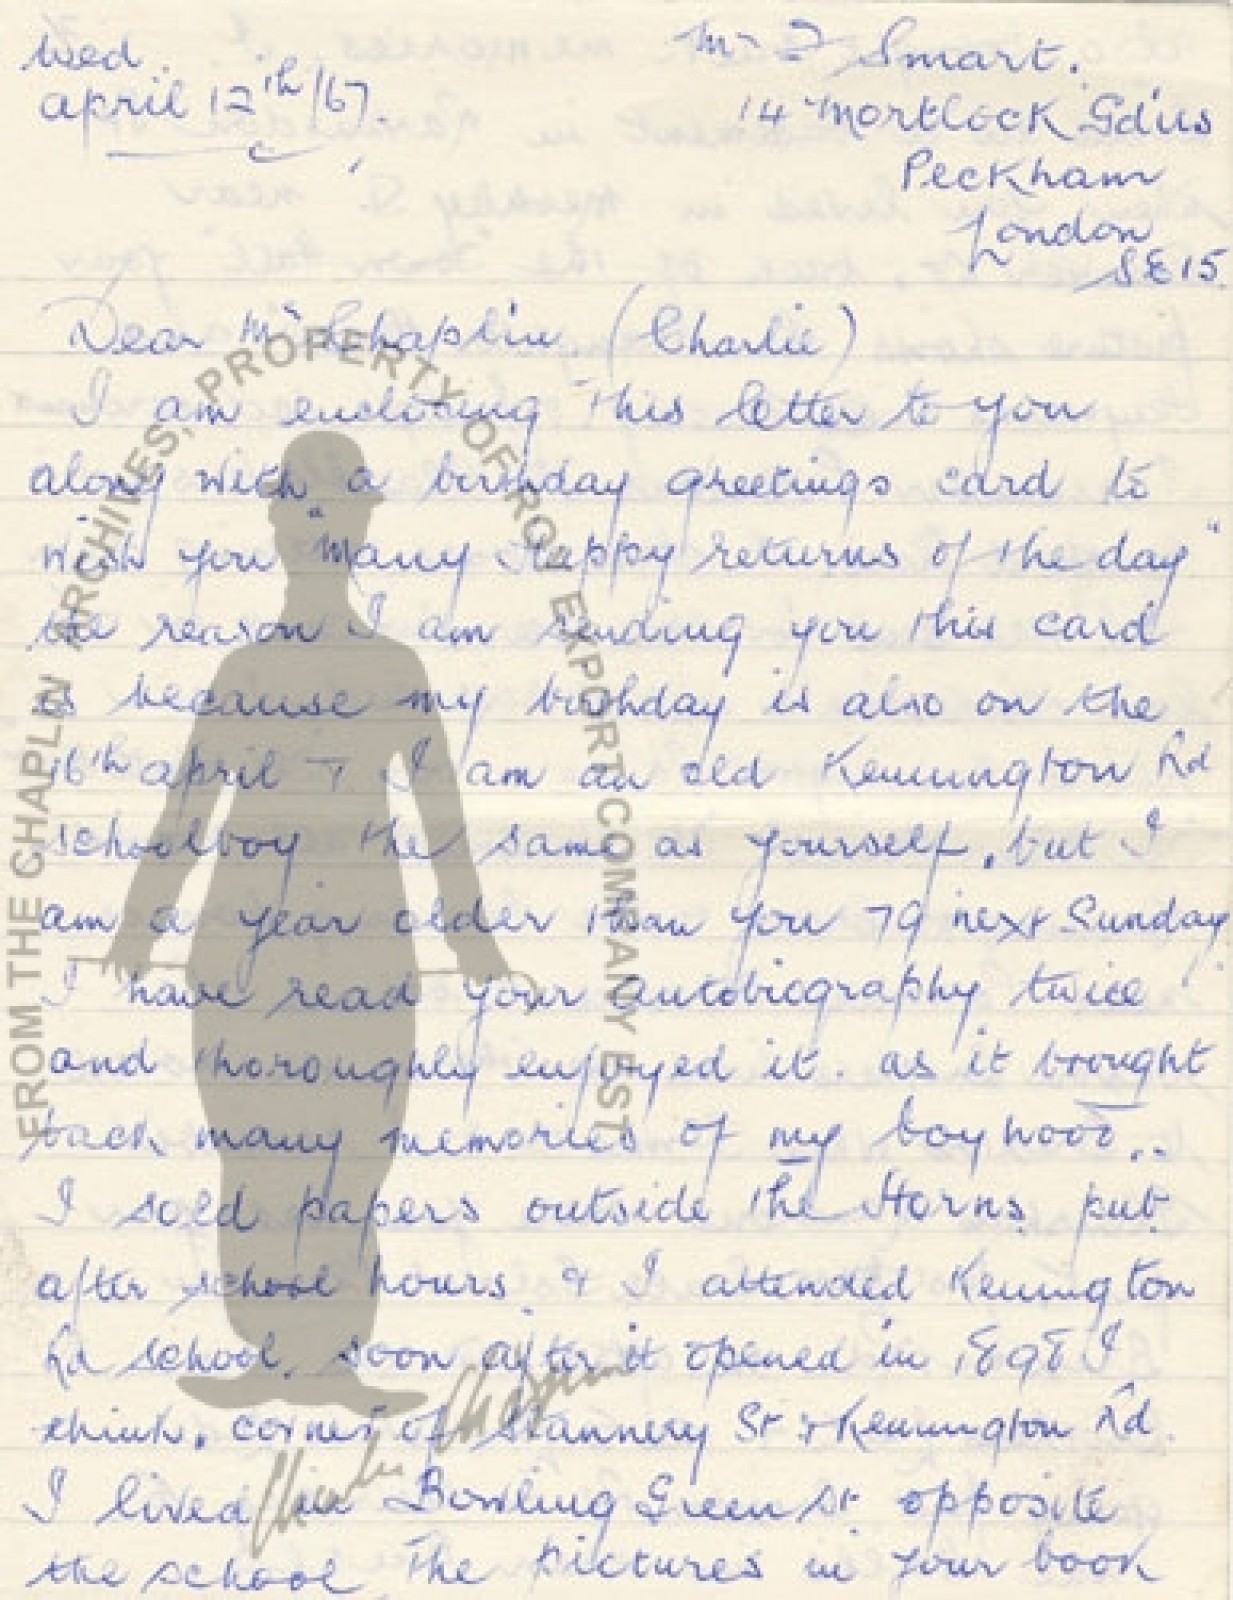 Wed.
april 12th/67.
Mr J Smart.
14 Mortlock Gdns
Peckham
London
SE15.
Dear Mr Chaplin (Charlie)
I am enclosing this letter to you
along with a birthday greetings card to
wish you "Many Happy returns of the day"
the reason I am sending you this card
is because my birthday is also on the
16th april I am an old Kennington Rd
schoolboy the same as yourself, but I
am a year older than you 79 next Sunday
I have read your autobiography twice
and thoroughly enjoyed it. as it brought
back many memories of my boyhood..
I sold papers outside the Horns. pub.
after school hours. & I attended Kennington
Rd school. soon after it opened in 1898 I
think. corner of Stannery St & Kennington Rd.
I lived in Bowling Green St opposite
the school. The pictures in your book
FROM THE CHAPLIN ARCHIVES, PROPERTY OF ROY EXPORT COMPANY EST
Charlie Chaplin